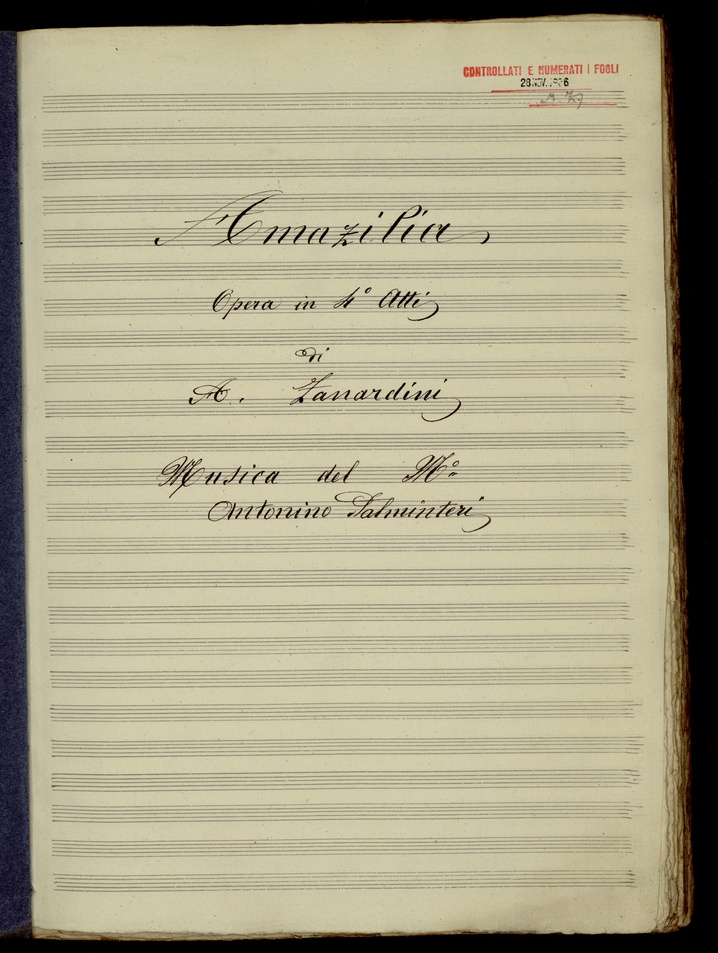 CONTROLLATI E NUMERATI I FOGLI
28 NOV.
Amazilia
Opera in 4° Atti
di
A. Zanardini
Musica del M°
Antonino Palminteri